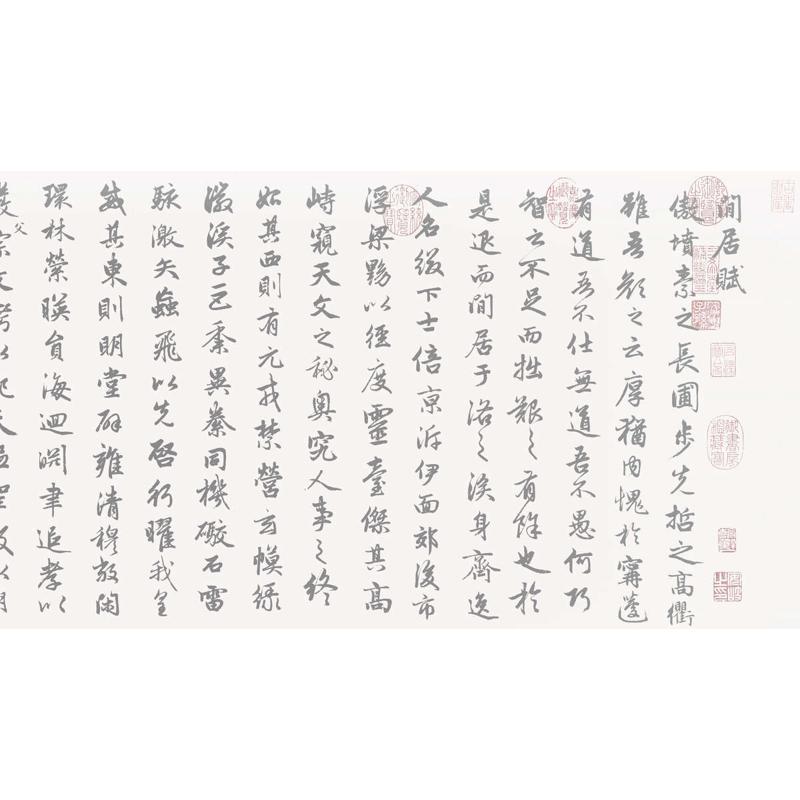 閒居賦
傲墳素之長圃步先哲之高衢
雖吾顏之云厚猶內愧於甯蘧
有道吾不仕無道吾不愚何巧
智之不足而拙艱之有餘也於
是退而閒居于洛之涘身齊逸
人名綴下士倍京泝伊面郊後市
浮梁黝以徑度靈臺傑其高
峙窺天文之秘奧究人事之終
始其西則有元戎禁營玄幙綠
徽溪子巨黍異絭同機礮石雷
駭激矢蝱飛以先啓行曜我皇
威其東則明堂辟雍清穆敞閑
環林縈暎員海迴淵聿追孝以
嚴父宗文考以配天